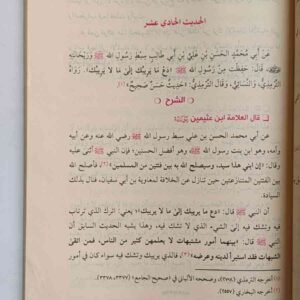 الحديث الحادي عشر
عَنْ أَبِي مُحَمَّدٍ الحَسَنِ بْنِ عَلِيِّ بْنِ أَبِي طَالِبٍ سِبْطِ رَسُولِ اللهِ ﷺ وَرَيْحَانَتِهِ
قَالَ: حَفِظْتُ مِنْ رَسُولِ اللهِ ﷺ: «دَعْ مَا يَرِيبُكَ إِلَى مَا لَا يَرِيبُكَ». رَوَاهُ
التِّرْمِذِيُّ، وَالنَّسَائِيُّ، وَقَالَ التِّرْمِذِيُّ: «حَدِيثٌ حَسَنٌ صَحِيحٌ» (١)
الشرح
قال العلامة ابن عثيمين
عن أبي محمد الحسن بن علي سبط رسول الله ﷺ رضي الله عنه وعن أبيه
وأمه، وهو ابن بنت رسول الله ﷺ وهو أفضل الحسنين، فإن النبي ﷺ أثنى عليه
وقال: «إن ابني هذا سيد، وسيصلح الله به بين فئتين من المسلمين» (٢)، فأصلح الله
بين الفئتين المتنازعتين حين تنازل عن الخلافة لمعاوية بن أبي سفيان، فنال بذلك
السؤدد.
أن النبي ﷺ قال: «دع ما يريبك إلى ما لا يريبك» يعني: اترك الذي ترتاب
فيه وتشك فيه إلى الشيء الذي لا تشك فيه، وهذا يشبه الحديث السابق أن
النبي ﷺ قال: «بينهما أمور مشتبهات لا يعلمهن كثير من الناس، فمن اتقى
الشبهات فقد استبرأ لدينه وعرضه» فما يريبك وتشك فيه سواء كان في أمور
(١) أخرجه الترمذي، وصححه الألباني في «صحيح الجامع» (٣٣٧٧، ٣٣٧٨).
(٢) أخرجه البخاري